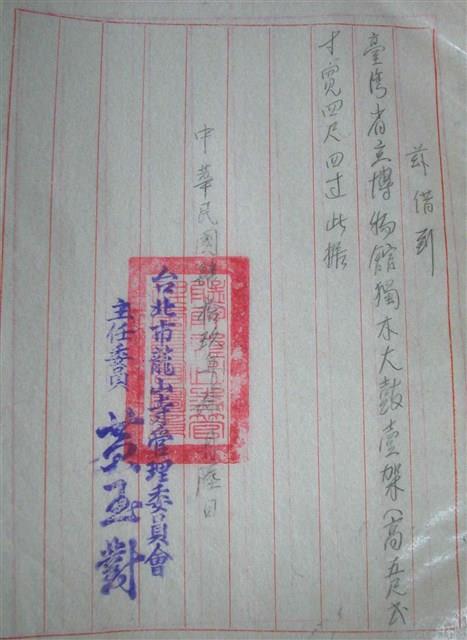 茲借到
臺灣省立博物館獨木大鼓壹架(高五尺弍
寸寬四尺四寸此据
中華民國拾玖年月陸日
台北市龍山寺管理委員會
主任委員 黃玉對